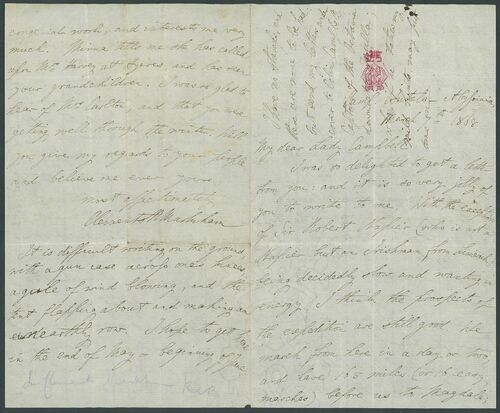 March 7th 1868
My dear Lady Campbell
I was so delighted to get a letter
from you: and it is so very jolly of
you to write to me. With the exception
of Sir Robert Napier (who is not a
Napier but an Irishman from Demerara)
being decidedly slow and wanting in
energy I think the prospects of
the expedition are still good. We
march from here in a day or two,
and have 165 miles (or 16 easy
marches) before us to Magdala;
congenial work, and interests me very
much. Minna tells me she has called
upon Mrs Harvey at and has seen
your grandchildren. I was so glad to
hear of Mr Carlton and that he was
getting well through the winter. Will
you give my regards to your people
and believe me ever yours
most affectionately
Clements R Markham
It is difficult writing on the ground
with a gun case across ones knees
a gale of wind blowing, and the
tent flapping about and making an
unearthly row. I hope to get
in the end of May or beginning of June
Sir Clements Markham KCB